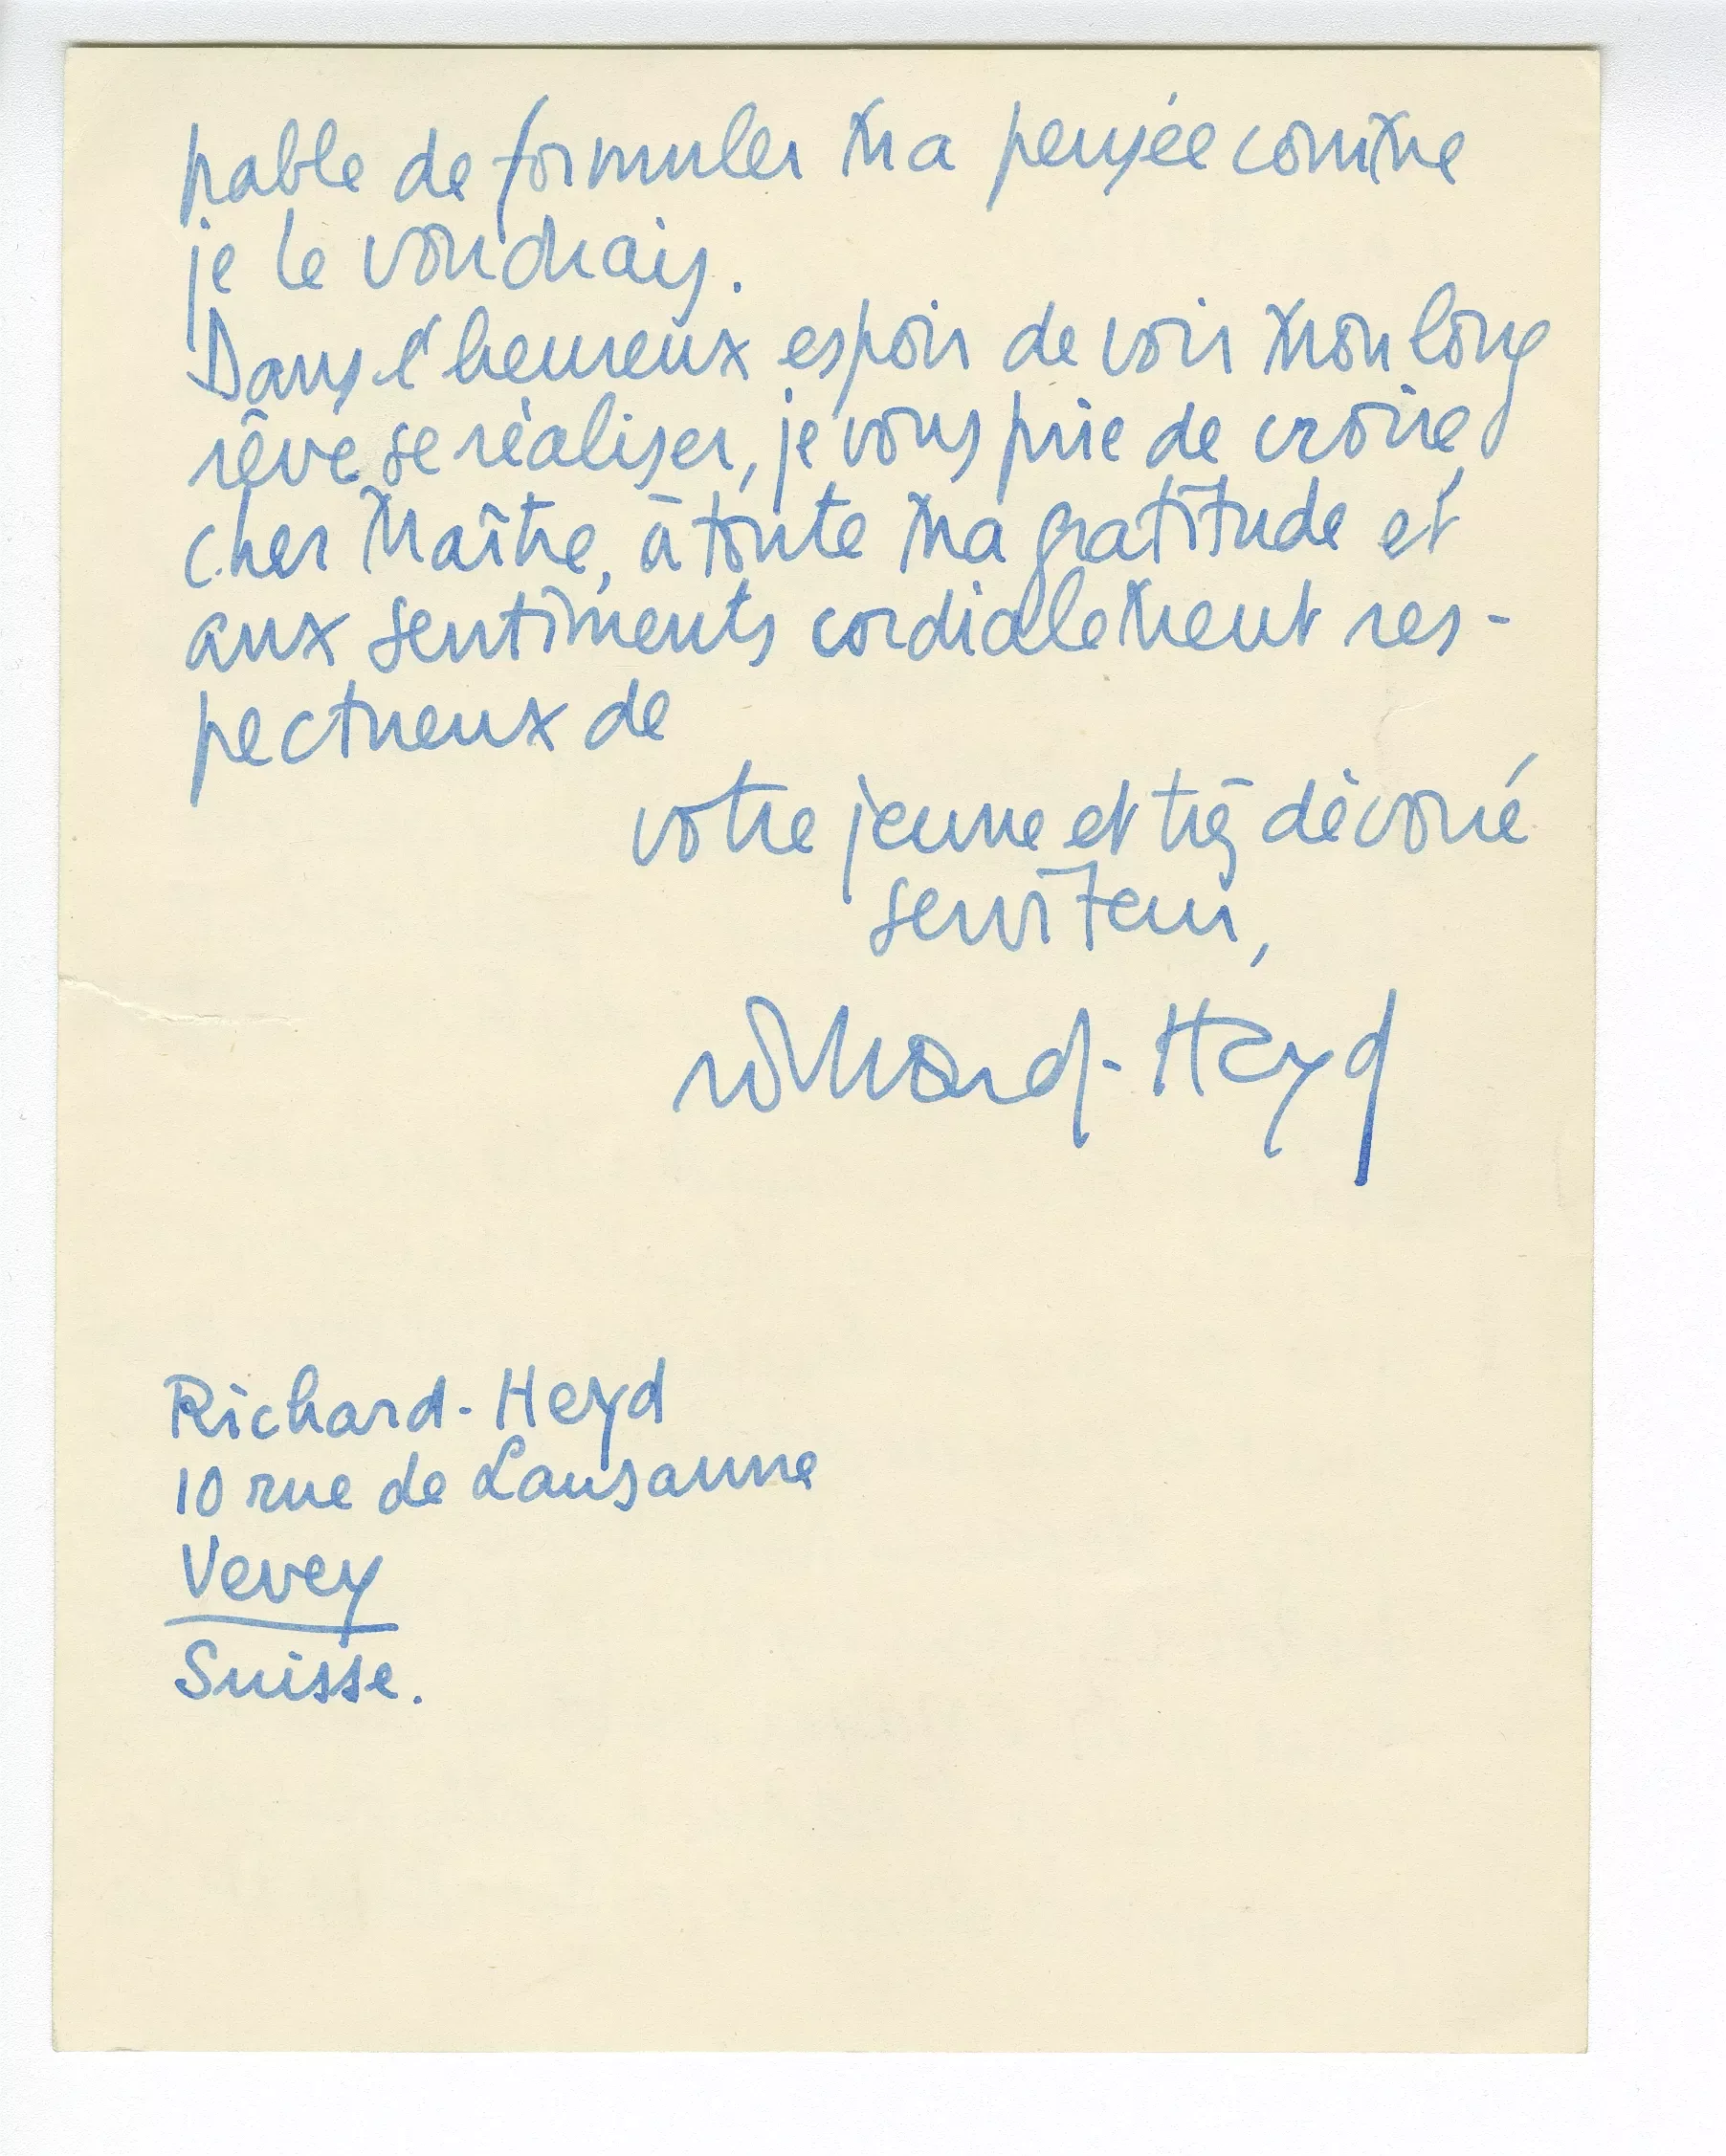 pable de formuler ma pensée comme
je le voudrais.
Dans l'heureux espoir de voir mon long
rêve se réaliser, je vous prie de croire,
cher Maître, à toute ma gratitude et
aux sentiments cordialement res-
pectueux de
votre jeune et très dévoué
serviteur,
richard-Heyd
Richard-Heyd
10 rue de Lausanne
Vevey
Suisse.